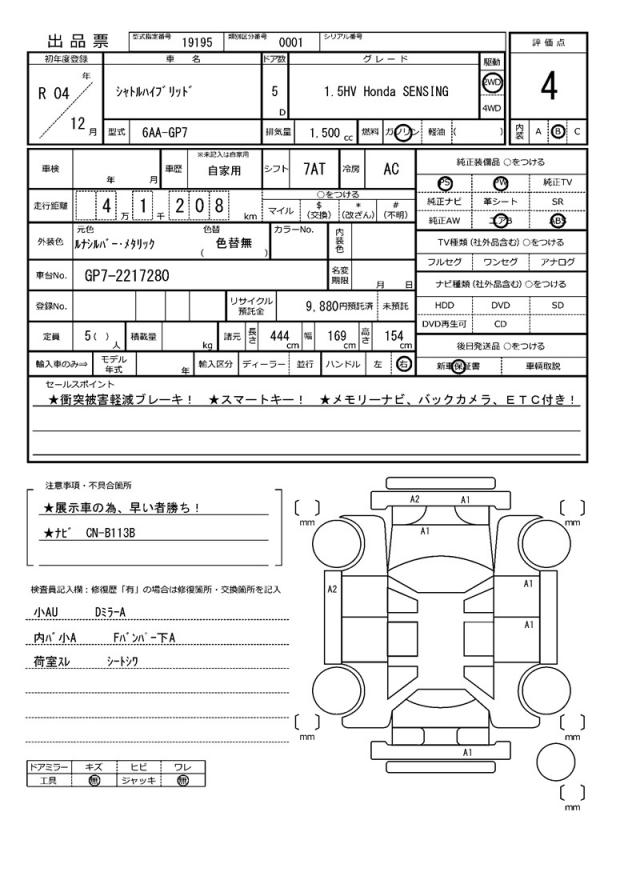 出品票 型式指定番号 19195 類別区分番号 0001 シリアル番号
初年度登録 車名 ドア数 グレード 駆動 評価点
R 04 年 12 月 シャトルハイブリッド 5 D 1.5HV Honda SENSING 2WD 4WD 4
型式 6AA-GP7 排気量 1.500 cc 燃料 ガソリン 軽油 ( ) 内装 A B C
車検 年 月 車歴 ※未記入は自家用 自家用 シフト 7AT 冷房 AC
走行距離 4 万 1 千 2 0 8 km ○をつける
マイル $(交換) *(改ざん) #(不明)
外装色 元色 ルナシルバー・メタリック 色替 ( 色替無 ) カラーNo. 内装色
車台No. GP7-2217280 名変期限 月 日
登録No. リサイクル預託金 9,880円預託済 未預託
定員 5( ) 人 積載量 kg 諸元 長さ 444 cm 幅 169 cm 高さ 154 cm
輸入車のみ⇒ モデル年式 年 輸入区分 ディーラー 並行 ハンドル 左 右
純正装備品 ○をつける
PS PW 純正TV
純正ナビ 革シート SR
純正AW エアB ABS
TV種類 (社外品含む) ○をつける
フルセグ ワンセグ アナログ
ナビ種類 (社外品含む) ○をつける
HDD DVD SD
DVD再生可 CD
後日発送品 ○をつける
新車保証書 車輌取説
セールスポイント
★衝突被害軽減ブレーキ! ★スマートキー! ★メモリーナビ、バックカメラ、ETC付き!
注意事項・不具合箇所
★展示車の為、早い者勝ち!
★ナビ CN-B113B
検査員記入欄:修復歴「有」の場合は修復箇所・交換箇所を記入
小AU DミラーA
内バ小A Fバンパー下A
荷室スレ シートシワ
ドアミラー キズ ヒビ ワレ
工具 無 ジャッキ 無
A2 A1
[ ] mm [ ] mm
A1
A2 A1
A1
[ ] mm [ ] mm
A1
[ ] mm